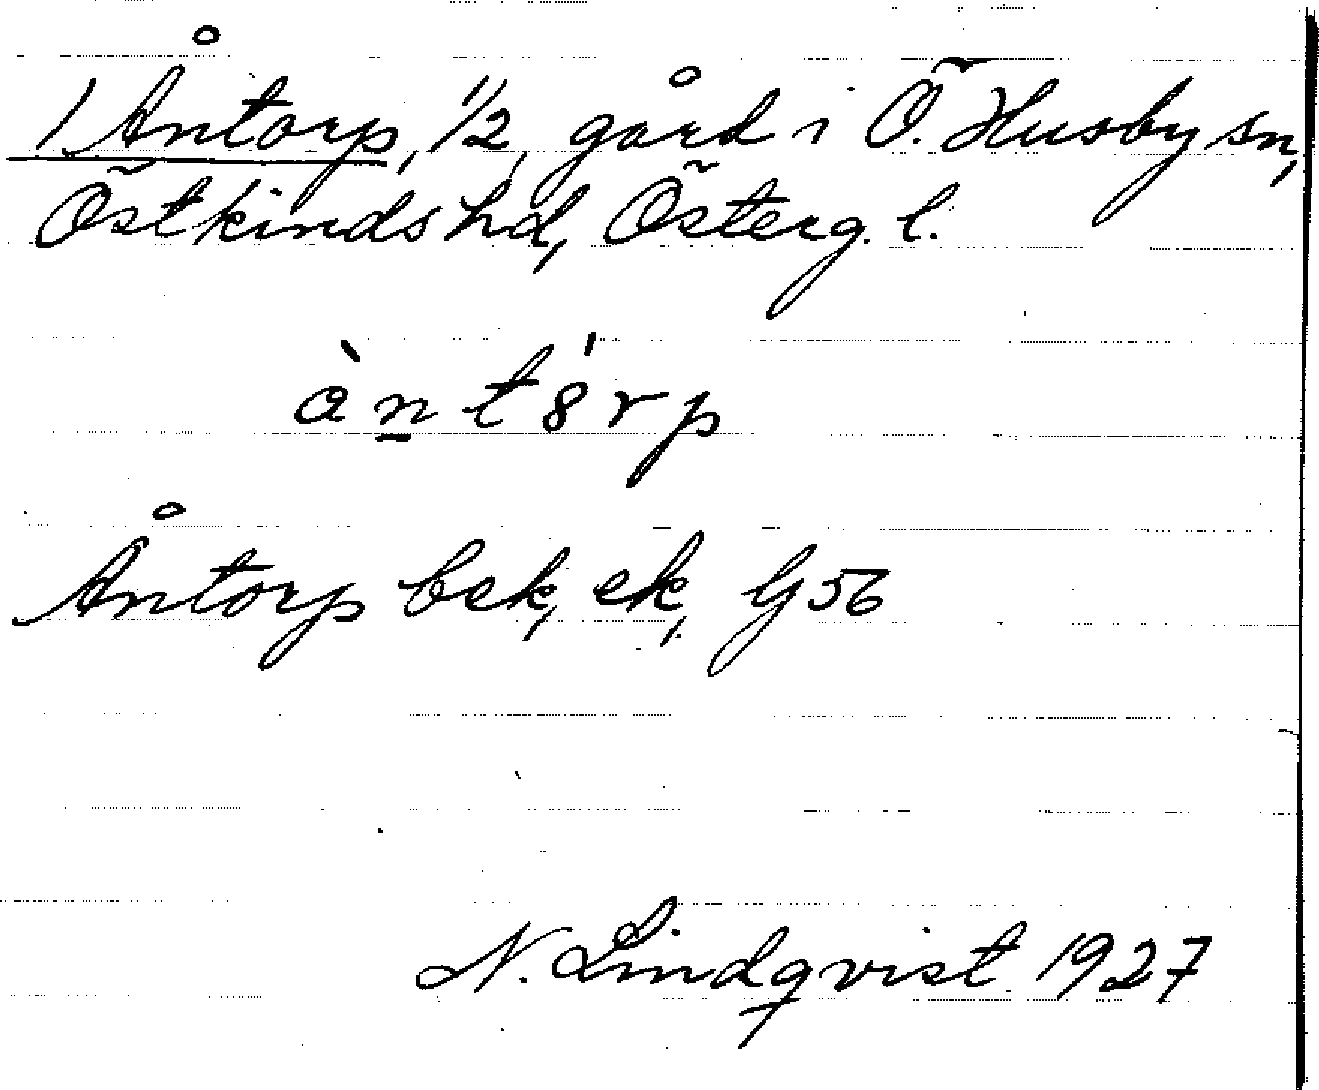 1 Åntorp, 1/2 gård i Ö. Husby sn,
Östkinds hd, Österg. l.
àntórp
Åntorp bek, ek, G 56
N. Lindqvist 1927